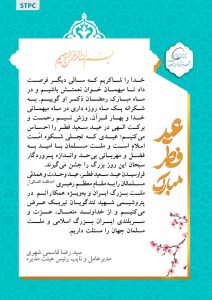 STPC
بسم الله الرحمن الرحیم
عید
فطر
مبارک
خدا را شاکریم که سالی دیگر فرصت
داد تا میهمان خوان نعمتش باشیم و در
ماه مبارک رمضان ذکر او گوییم. به
شکرانه یک ماه روزه داری در ماه میهمانی
خدا و بهار قرآن، وزش نسیم رحمت و
برکت الهی در عید سعید فطر را احساس
می‌کنیم؛ عیدی که تجلی شکوه امت
اسلام است و ملت مسلمان با امید به
فضل و مهربانی بی‌حد و اندازه پروردگار
سبحان این روز بزرگ را جشن می‌گیرند.
فرارسیدن عید سعید فطر، عید وحدت و همدلی
مسلمانان را به مقام معظم رهبری
ملت بزرگ ایران و به‌ویژه همکارانم در
پتروشیمی شهید تندگویان تبریک عرض
می‌کنیم و از خداوند متعال، عزت و
سربلندی ایران بزرگ اسلامی و ملت
مسلمان جهان را مسئلت داریم.
سید رضا قاسمی شهری
مدیرعامل و نایب رئیس هیئت مدیره